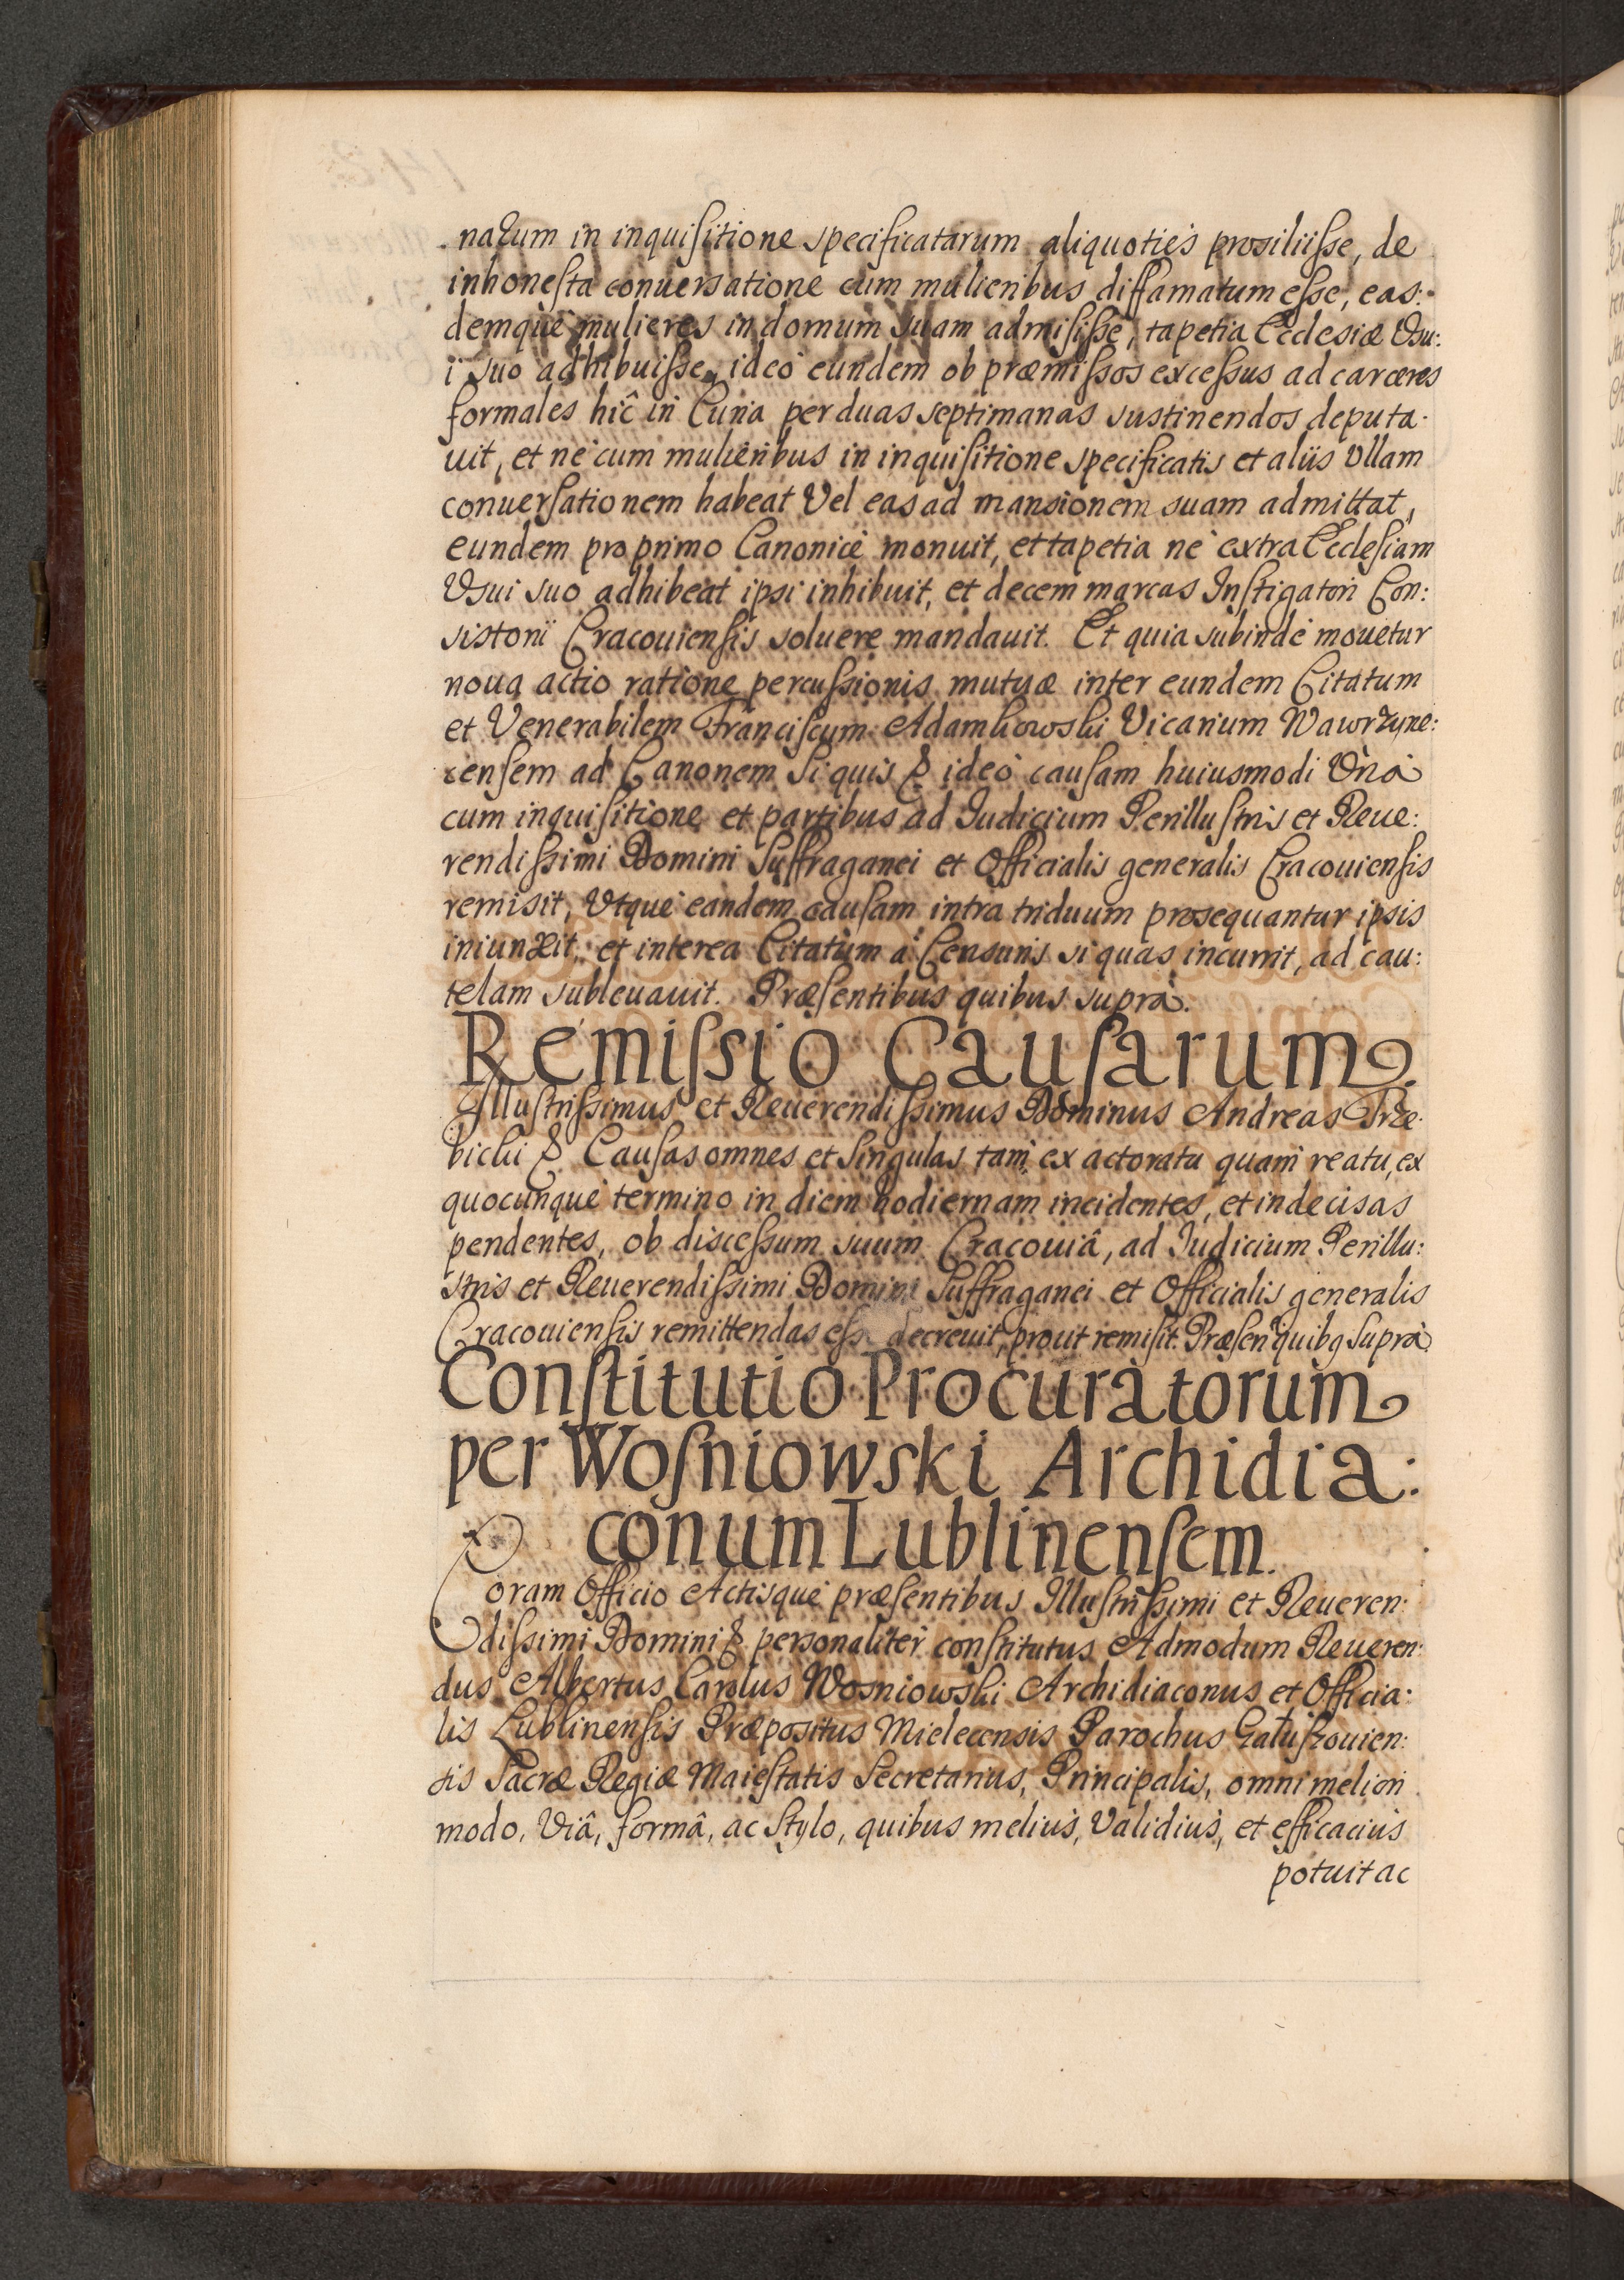 natum in inquiſitione specificatarum aliquotiès prosiliiſse, de
inhoneſta conuersatione cum mulieribus diffamatum eſse, eas:
demquè mulieres in domum suam admiſiſse, tapetia Eccleſiæ Vsu:
i suo adhibuiſse, ideò eundem ob præmiſsos exceſsus ad carceres
formales hîc in Curia per duas septimanas sustinendos deputa:
uit, et nè cum mulieribus in inquiſitione specificatis et aliis Vllam
conuerſationem habeat Vel eas ad mansionem suam admittat,
eundem pro primo Canonicè monuit, et tapetia nè extra Eccleſiam
Vsui suo adhibeat ipsi inhibuit, et decem marcas Inſtigatori Con:
sistorii Cracouienſis soluere mandauit. Et quia subindè mouetur
noua actio ratione percuſsionis mutuæ inter eundem Citatum
et Venerabilem Franciſcum Adamkowski Vicarium Wawrzyne:
cenſem ad Canonem Si quis &. ideò cauſam huiusmodi Vnà
cum inquiſitione et partibus ad Iudicium Perilluſtris et Reue:
rendiſsimi Domini Suffraganei et Officialis generalis Cracouienſis
remisit, Vtquè eandem cauſam intra triduum prosequantur ipsis
iniunxit, et interea Citatum à Censuris si quas incurrit, ad cau:
telam subleuauit. Præſentibus quibus suprà.
Remiſsio Cauſarum.
Illuſtriſsimus et Reuerendiſsimus Dominus Andreas Trze:
bicki &. Cauſas omnes et Singulas tam ex actoratu quam reatu, ex
quocunquè termino in diem hodiernam incidentes, et indecisas
pendentes, ob disceſsum suum Cracouiâ, ad Iudicium Perillu:
stris et Reuerendiſsimi Domini Suffraganei et Officialis generalis
Cracouienſis remittendas eſse decreuit, prout remiſit. Præſen quibq Suprà
Conſtitutio Procuratorum
per Woſniowski Archidia:
conum Lublinenſem.
Coram Officio Actisquè præſentibus Illuſtriſsimi et Reueren:
diſsimi Domini &. personaliter conſtitutus Admodum Reueren:
dus Albertus Carolus Wosniowski Archidiaconus et Officia:
lis Lublinensis Præpositus Mielecensis Parochus Gałuſzouien:
sis Sacræ Regiæ Maieſtatis Secretarius, Principalis, omni meliori
modo, Viâ, formâ, ac Stylo, quibus meliùs, Validiùs, et efficaciùs
potuit ac